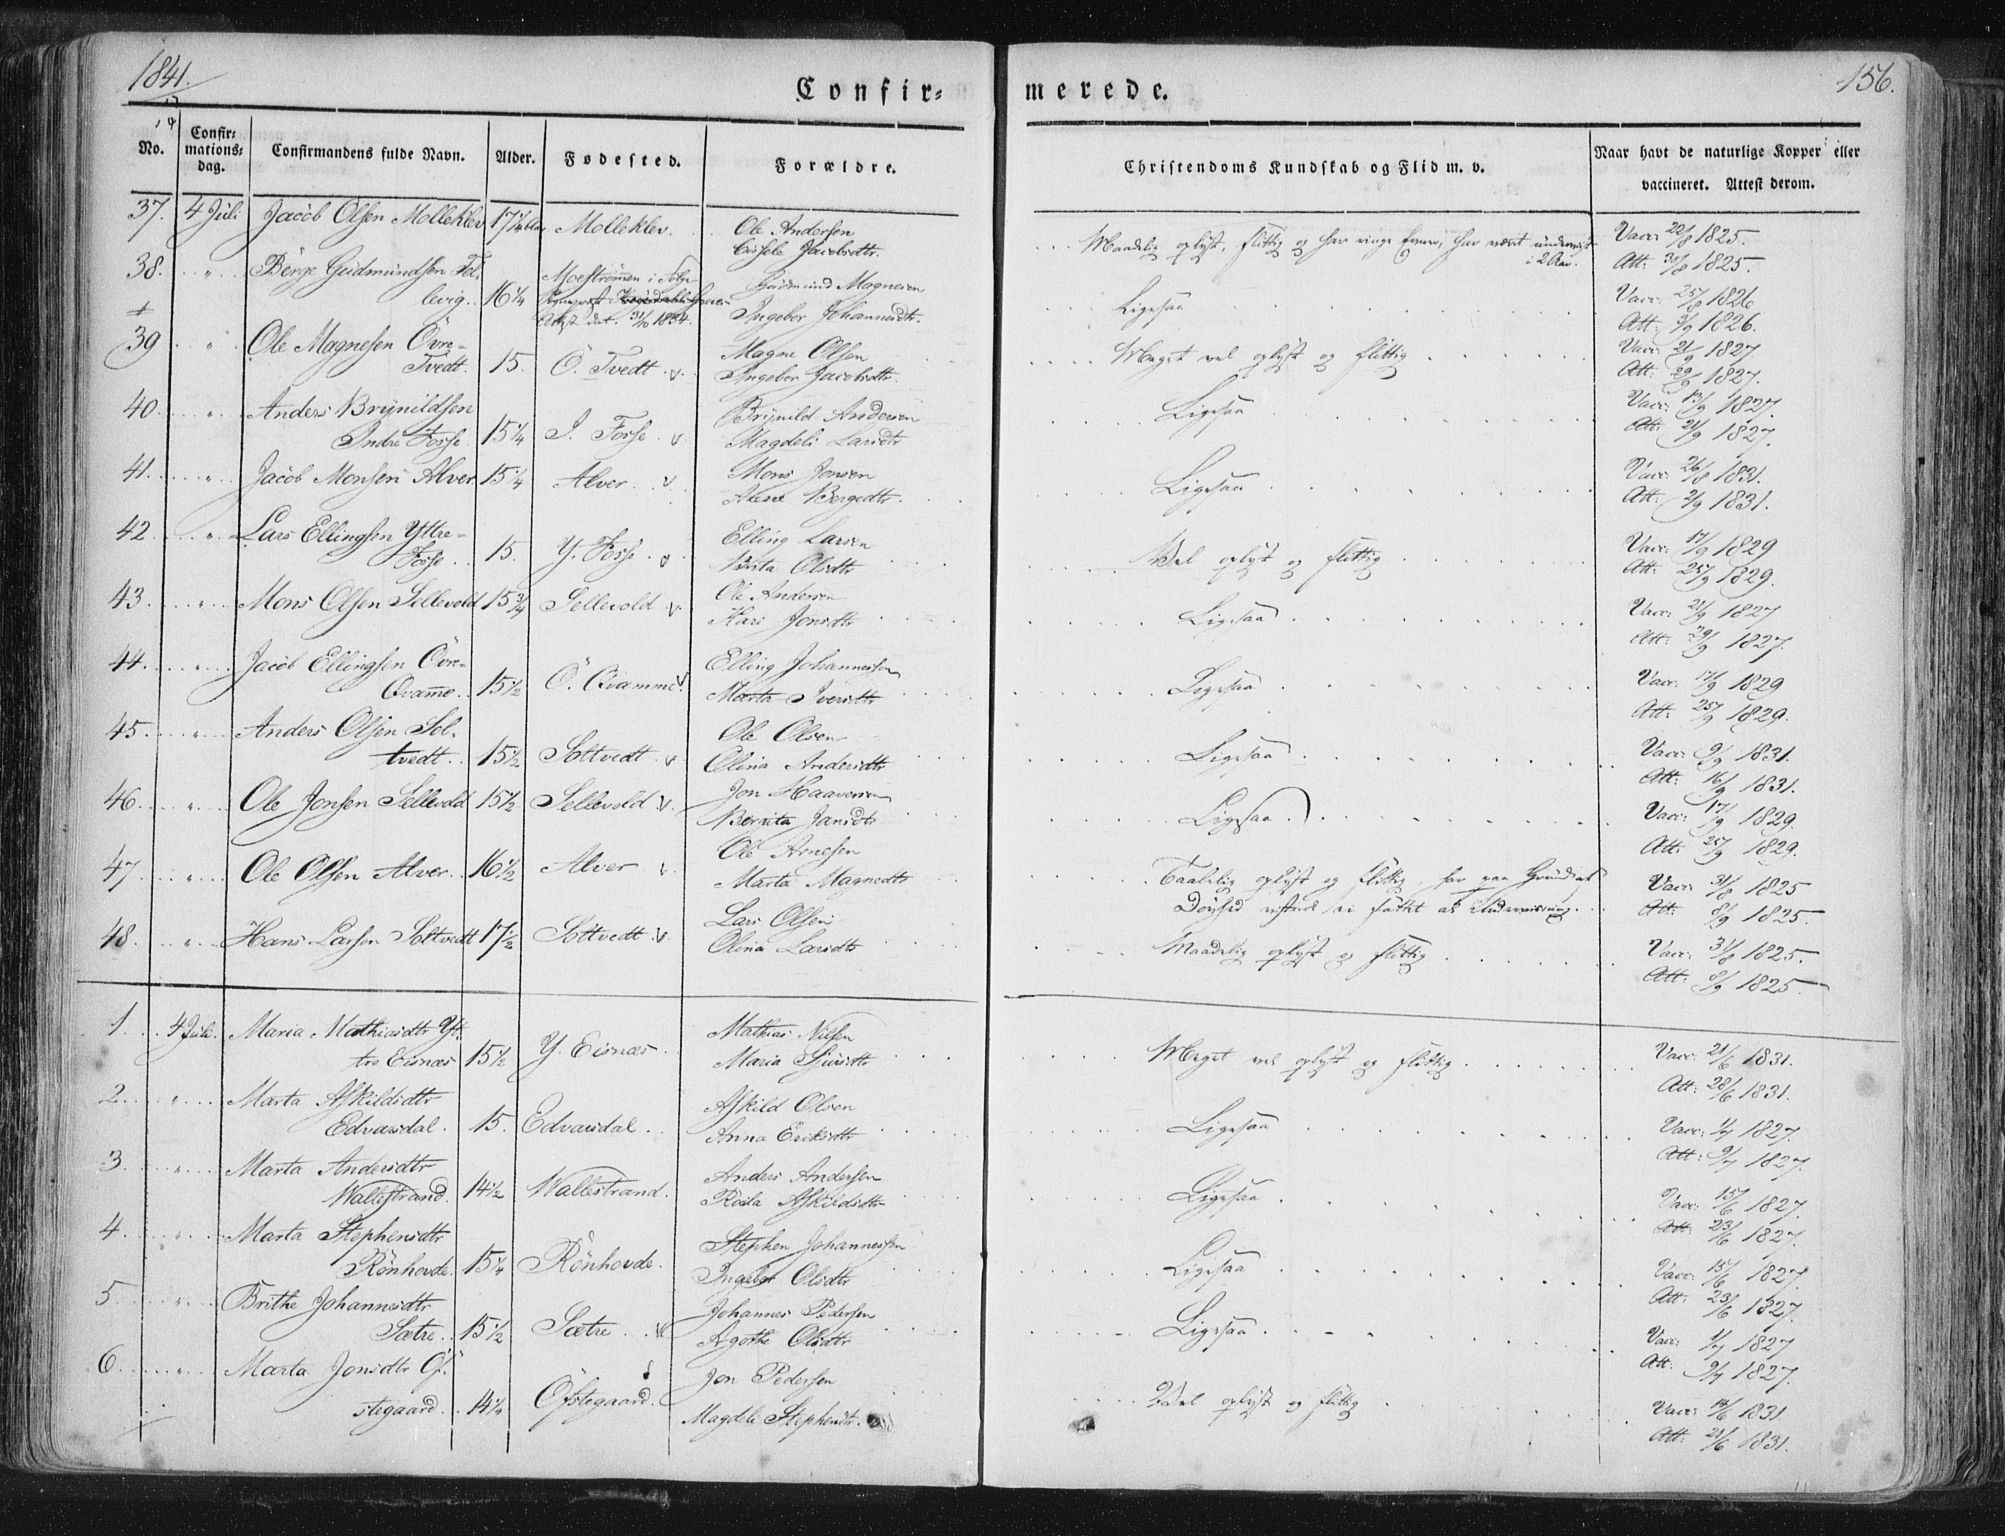 1841.
Confir=
merede.
156.
No.
Confir=
mations=
dag.
Confirmandens fulde Navn.
Alder.
Fødested.
Forældre.
Christendoms Kundskab og Flid m. v.
Naar havt de naturlige Kopper eller
vaccineret. Attest derom.
37. 4 Juli Jacob Olsen Molleklev 17 1/4 Molleklev. Ole Andersen
Jacobsdtr.
Maadelig oplyst, flittig og har ringe har været
i 2 Aar.
Vacc: 1825.
Att: 31/8 1825.
38. " Börge Gudmundsen Fol-
levig. 16 1/4 Gudmund Magnesen
Ingebor Johannesdtr.
Attest dat. 31/10 1834.
Ligesaa
Vacc: 25/8 1826
Att: 3/9 1826.
39 " Ole Magnesen Övre-
Tvedt. 15. Ö. Tvedt Magne Olsen
Ingebor Jacobsdtr.
Meget vel oplyst og flittig
Vacc: 21/9 1827.
Att: 29/9 1827.
40. " Anders Brynildsen
Indre Fosse. 15 1/4 I. Fosse Brynild Andersen
Magdeli Larsdtr
Ligesaa
Vacc: 13/9 1827.
Att: 21/9 1827.
41. " Jacob Monsen Alver 15 1/4 Alver Mons Jonsen
Bergedtr.
Ligesaa
Vacc: 26/8 1831.
Att: 2/9 1831.
42 " Lars Ellingsen Yttre-
Fosse. 15. Y. Fosse Elling Larsen
Brita Olsdtr
Vel oplyst og flittig
Vacc: 17/9 1829
Att: 25/9 1829.
43. " Mons Olsen Sellevold 15 3/4 Sellevold Ole Andersen
Kari Jonsdtr
Ligesaa
Vacc: 21/9 1827
Att: 29/9 1827.
44. " Jacob Ellingsen Övre-
Qvamme. 15 1/2 Ö. Qvamme. Elling Johannessen
Marta Iversdtr
Ligesaa
Vacc: 17/9 1829
Att: 25/9 1829.
45. " Anders Olsen Sol-
tvedt. 15 1/2 Soltvedt Ole Olsen
Olina Andersdtr
Ligesaa
Vacc: 9/9 1831.
Att: 16/9 1831.
46. " Ole Jonsen Sellevold 15 1/2 Sellevold Jon Haaversen
Bergita Jansdtr
Ligesaa
Vacc: 17/9 1829.
Att: 25/9 1829.
47. " Ole Olsen Alver 16 1/2 Alver Ole Arnesen
Marta Magnedtr
Taalelig oplyst og flittig, har paa Grund af
Døvhed ei faaet al Underviisning.
Vacc: 31/8 1825
Att: 8/9 1825.
48. " Hans Larsen Soltvedt 17 1/2 Soltvedt Lars Olsen
Olina Larsdtr
Maadelig oplyst og flittig
Vacc: 31/8 1825.
Att: 8/9 1825.
1. 4 Juli. Maria Mathiasdtr Yt-
tre Eisnæs 15 1/2 Y. Eisnæs. Mathias Nilsen
Maria Sjursdtr
Meget vel oplyst og flittig
Vacc: 21/6 1831.
Att: 28/6 1831.
2. " Marta Askildsdtr
Edvarsdal. 15. Edvarsdal. Askild Olsen
Anna Eriksdtr
Ligesaa
Vacc: 1/7 1827.
Att: 9/7 1827.
3 " Marta Andersdtr
Wallestrand. 14 1/2 Wallestrand. Anders Andersen
Askildsdtr
Ligesaa
Vacc: 15/6 1827.
Att: 23/6 1827.
4 " Marta Stephensdtr
Rönhovde. 15 1/4 Rönhovde. Stephen Johannessen
Ingebor Olsdtr
Ligesaa
Vacc: 15/6 1827.
Att: 23/6 1827.
5 " Brithe Johannesdtr
Sætre. 15 1/2 Sætre Johannes Pedersen
Agothe Olsdtr
Ligesaa
Vacc: 1/7 1827
Att: 9/7 1827.
6 " Marta Jonsdtr Öf-
stegaard. 14 1/4 Öfstegaard. Jon Pedersen
Magdeli Stephensdtr.
Vel oplyst og flittig
Vacc: 14/6 1831.
Att: 21/6 1831.